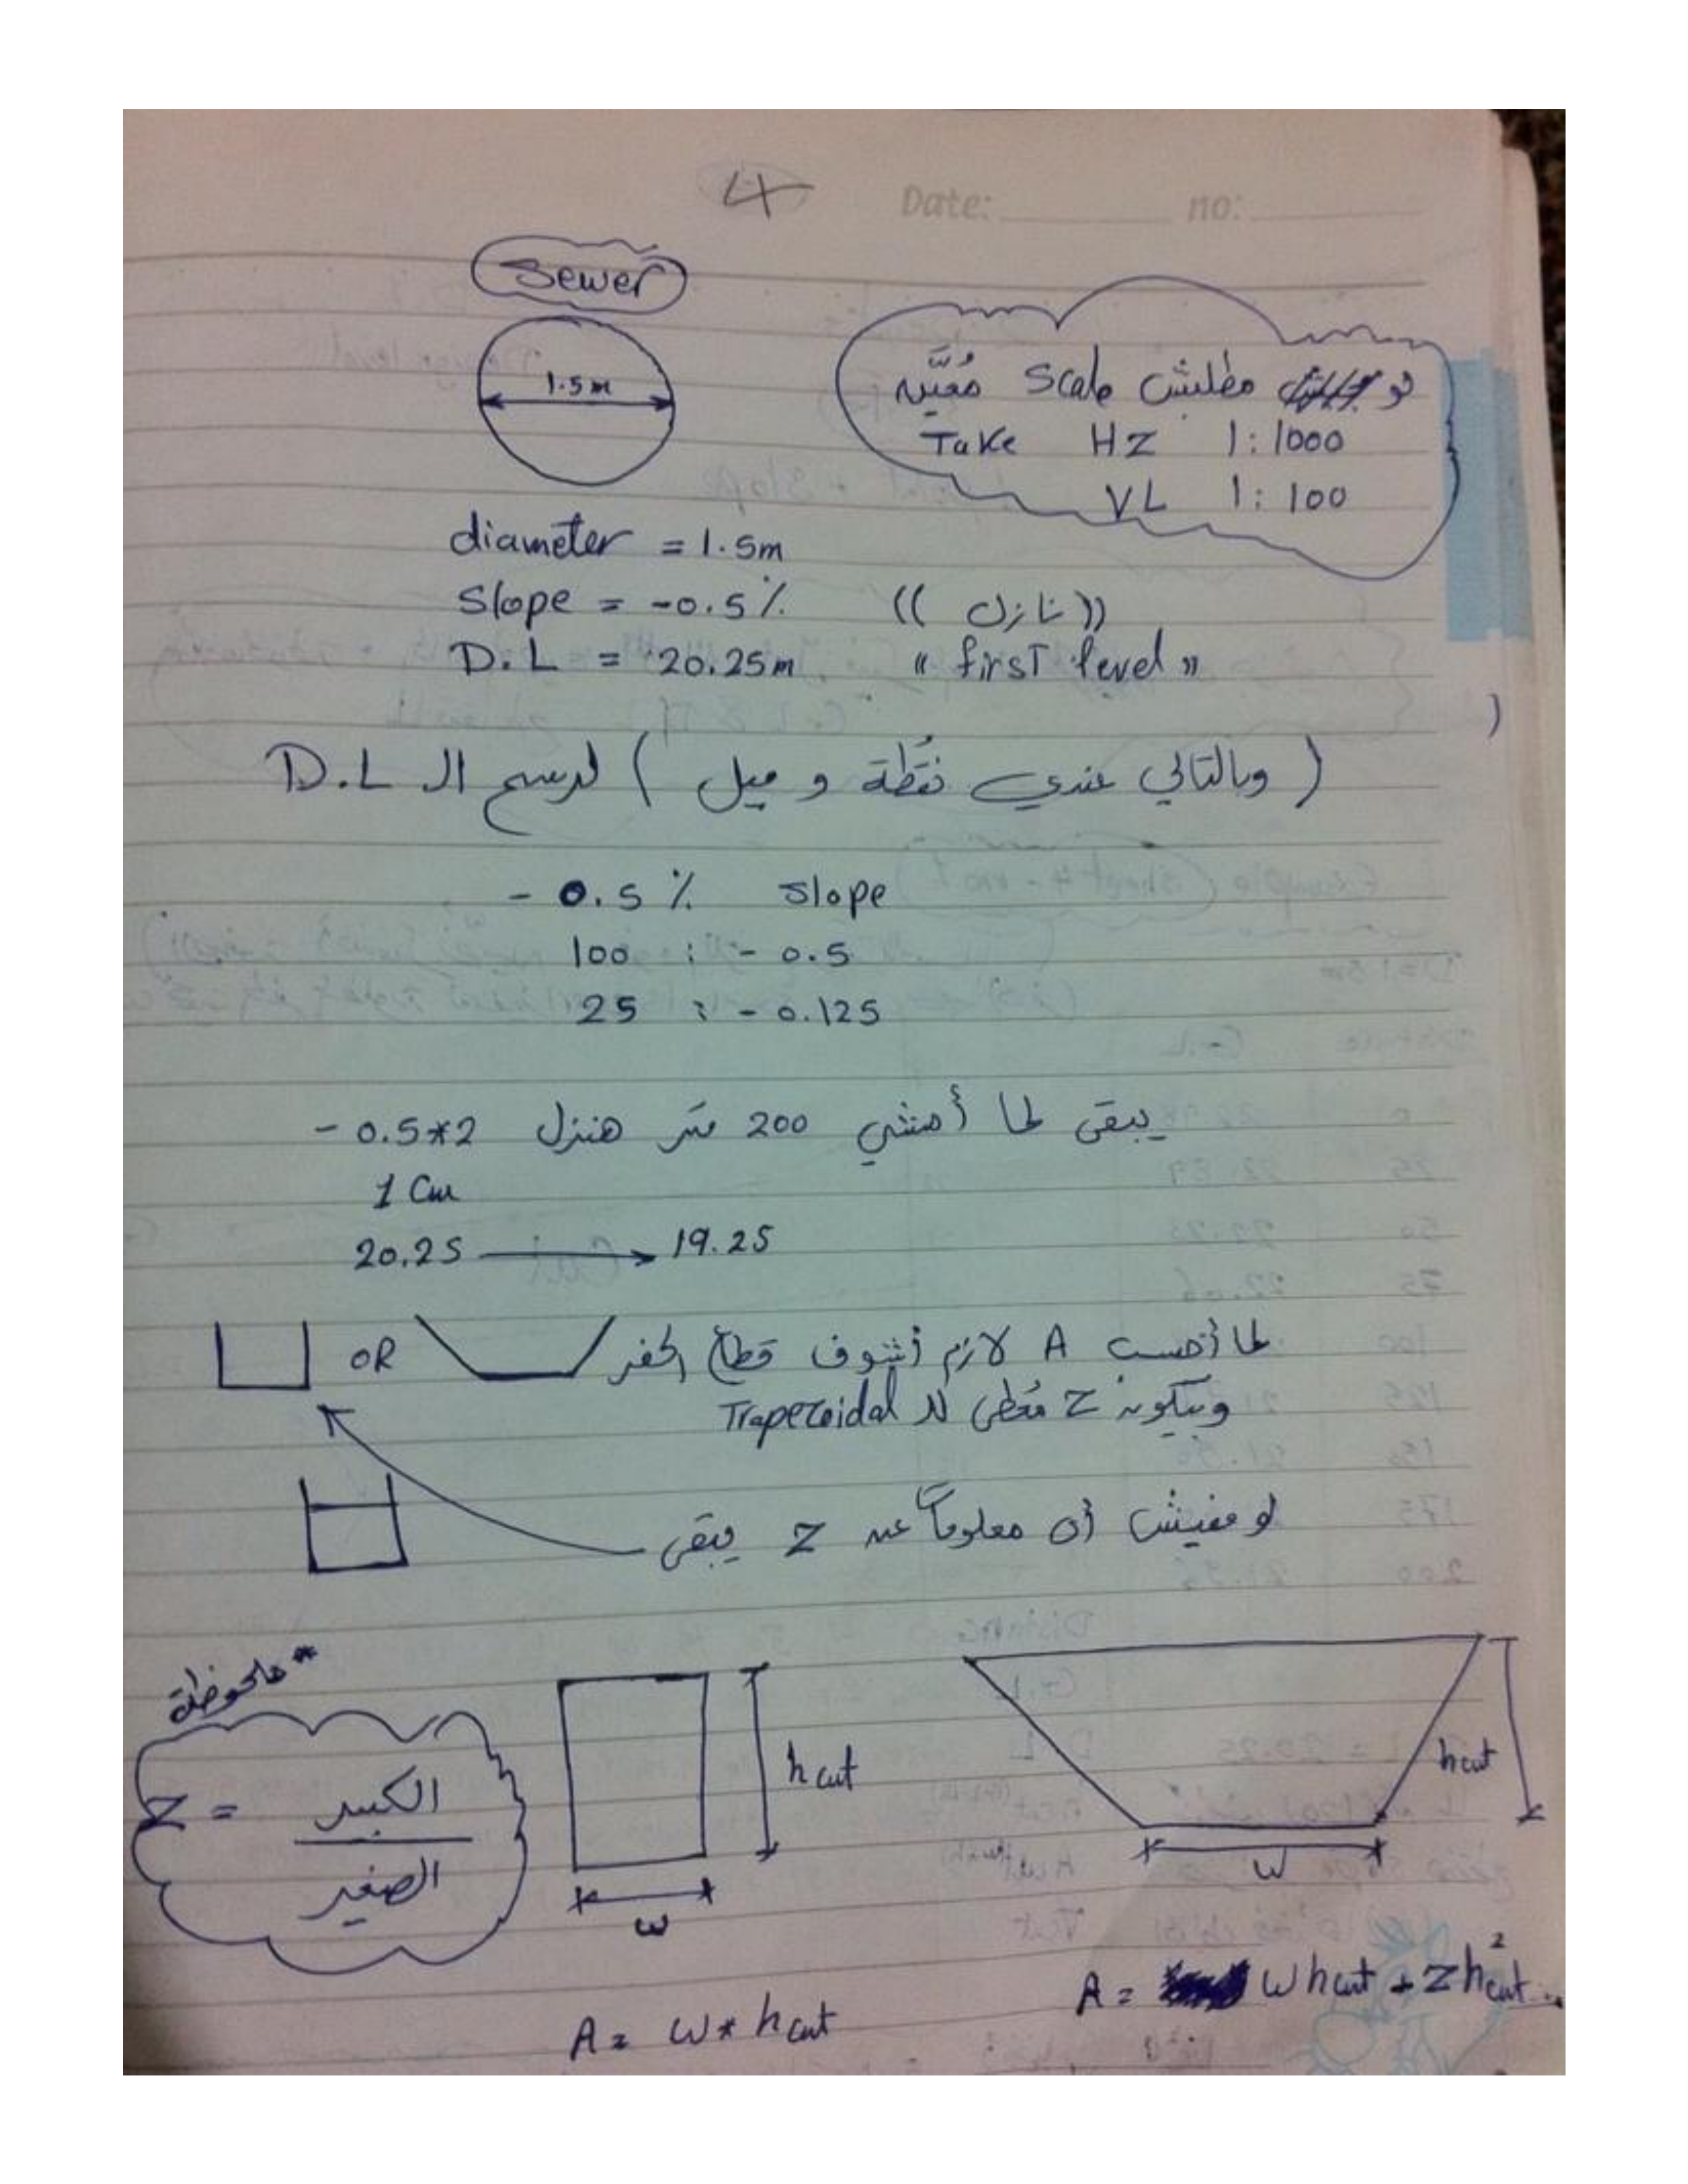 4
Date: no:
Sewer
1.5m
لو مطلبش Scale مُعيَّنه
Take HZ 1:1000
VL 1:100
diameter = 1.5m
Slope = -0.5% (( نازل ))
D.L = 20.25m " first level "
( وبالتالي عندي نقطة و ميل ) لرسم ال D.L
- 0.5 % Slope
100 : - 0.5
25 : - 0.125
يبقى لما أمشي 200 متر هننزل - 0.5*2
1 Cm
20.25 → 19.25
لما أحسب A لازم أشوف قطاع الحفر OR
وبيكون Z مُعطى لل Trapezoidal
لو مفيش أى معلومات عن Z يبقى
* ملحوظة
Z = الكبير / الصغير
h cut
w
h cut
w
A = w * h cut
A = w h cut + Z h²cut